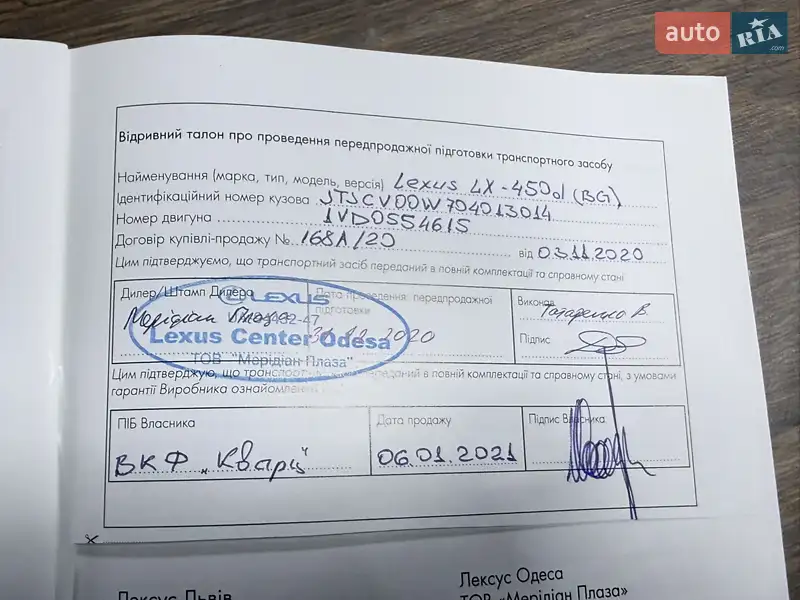 auto RIA.com
Відривний талон про проведення передпродажної підготовки транспортного засобу
Найменування (марка, тип, модель, версія) Lexus LX-450d (BG)
Ідентифікаційний номер кузова JTJCV00W704013014
Номер двигуна 1VD0554615
Договір купівлі-продажу № 168А/20 від 03.11.2020
Цим підтверджуємо, що транспортний засіб переданий в повній комплектації та справному стані
Дилер/Штамп Дилера
Дата проведення передпродажної підготовки
Виконав Татаренко В.
LEXUS
Мерідіан Плаза
2020
Lexus Center Odesa
Підпис
ТОВ "Мерідіан Плаза"
Цим підтверджую, що транспортний переданий в повній комплектації та справному стані, з умовами
гарантії Виробника ознайомлений
ПІБ Власника
Дата продажу
Підпис Власника
ВКФ „Кварц"
06.01.2021
Лексус Львів
Лексус Одеса
ТОВ «Мерідіан Плаза»